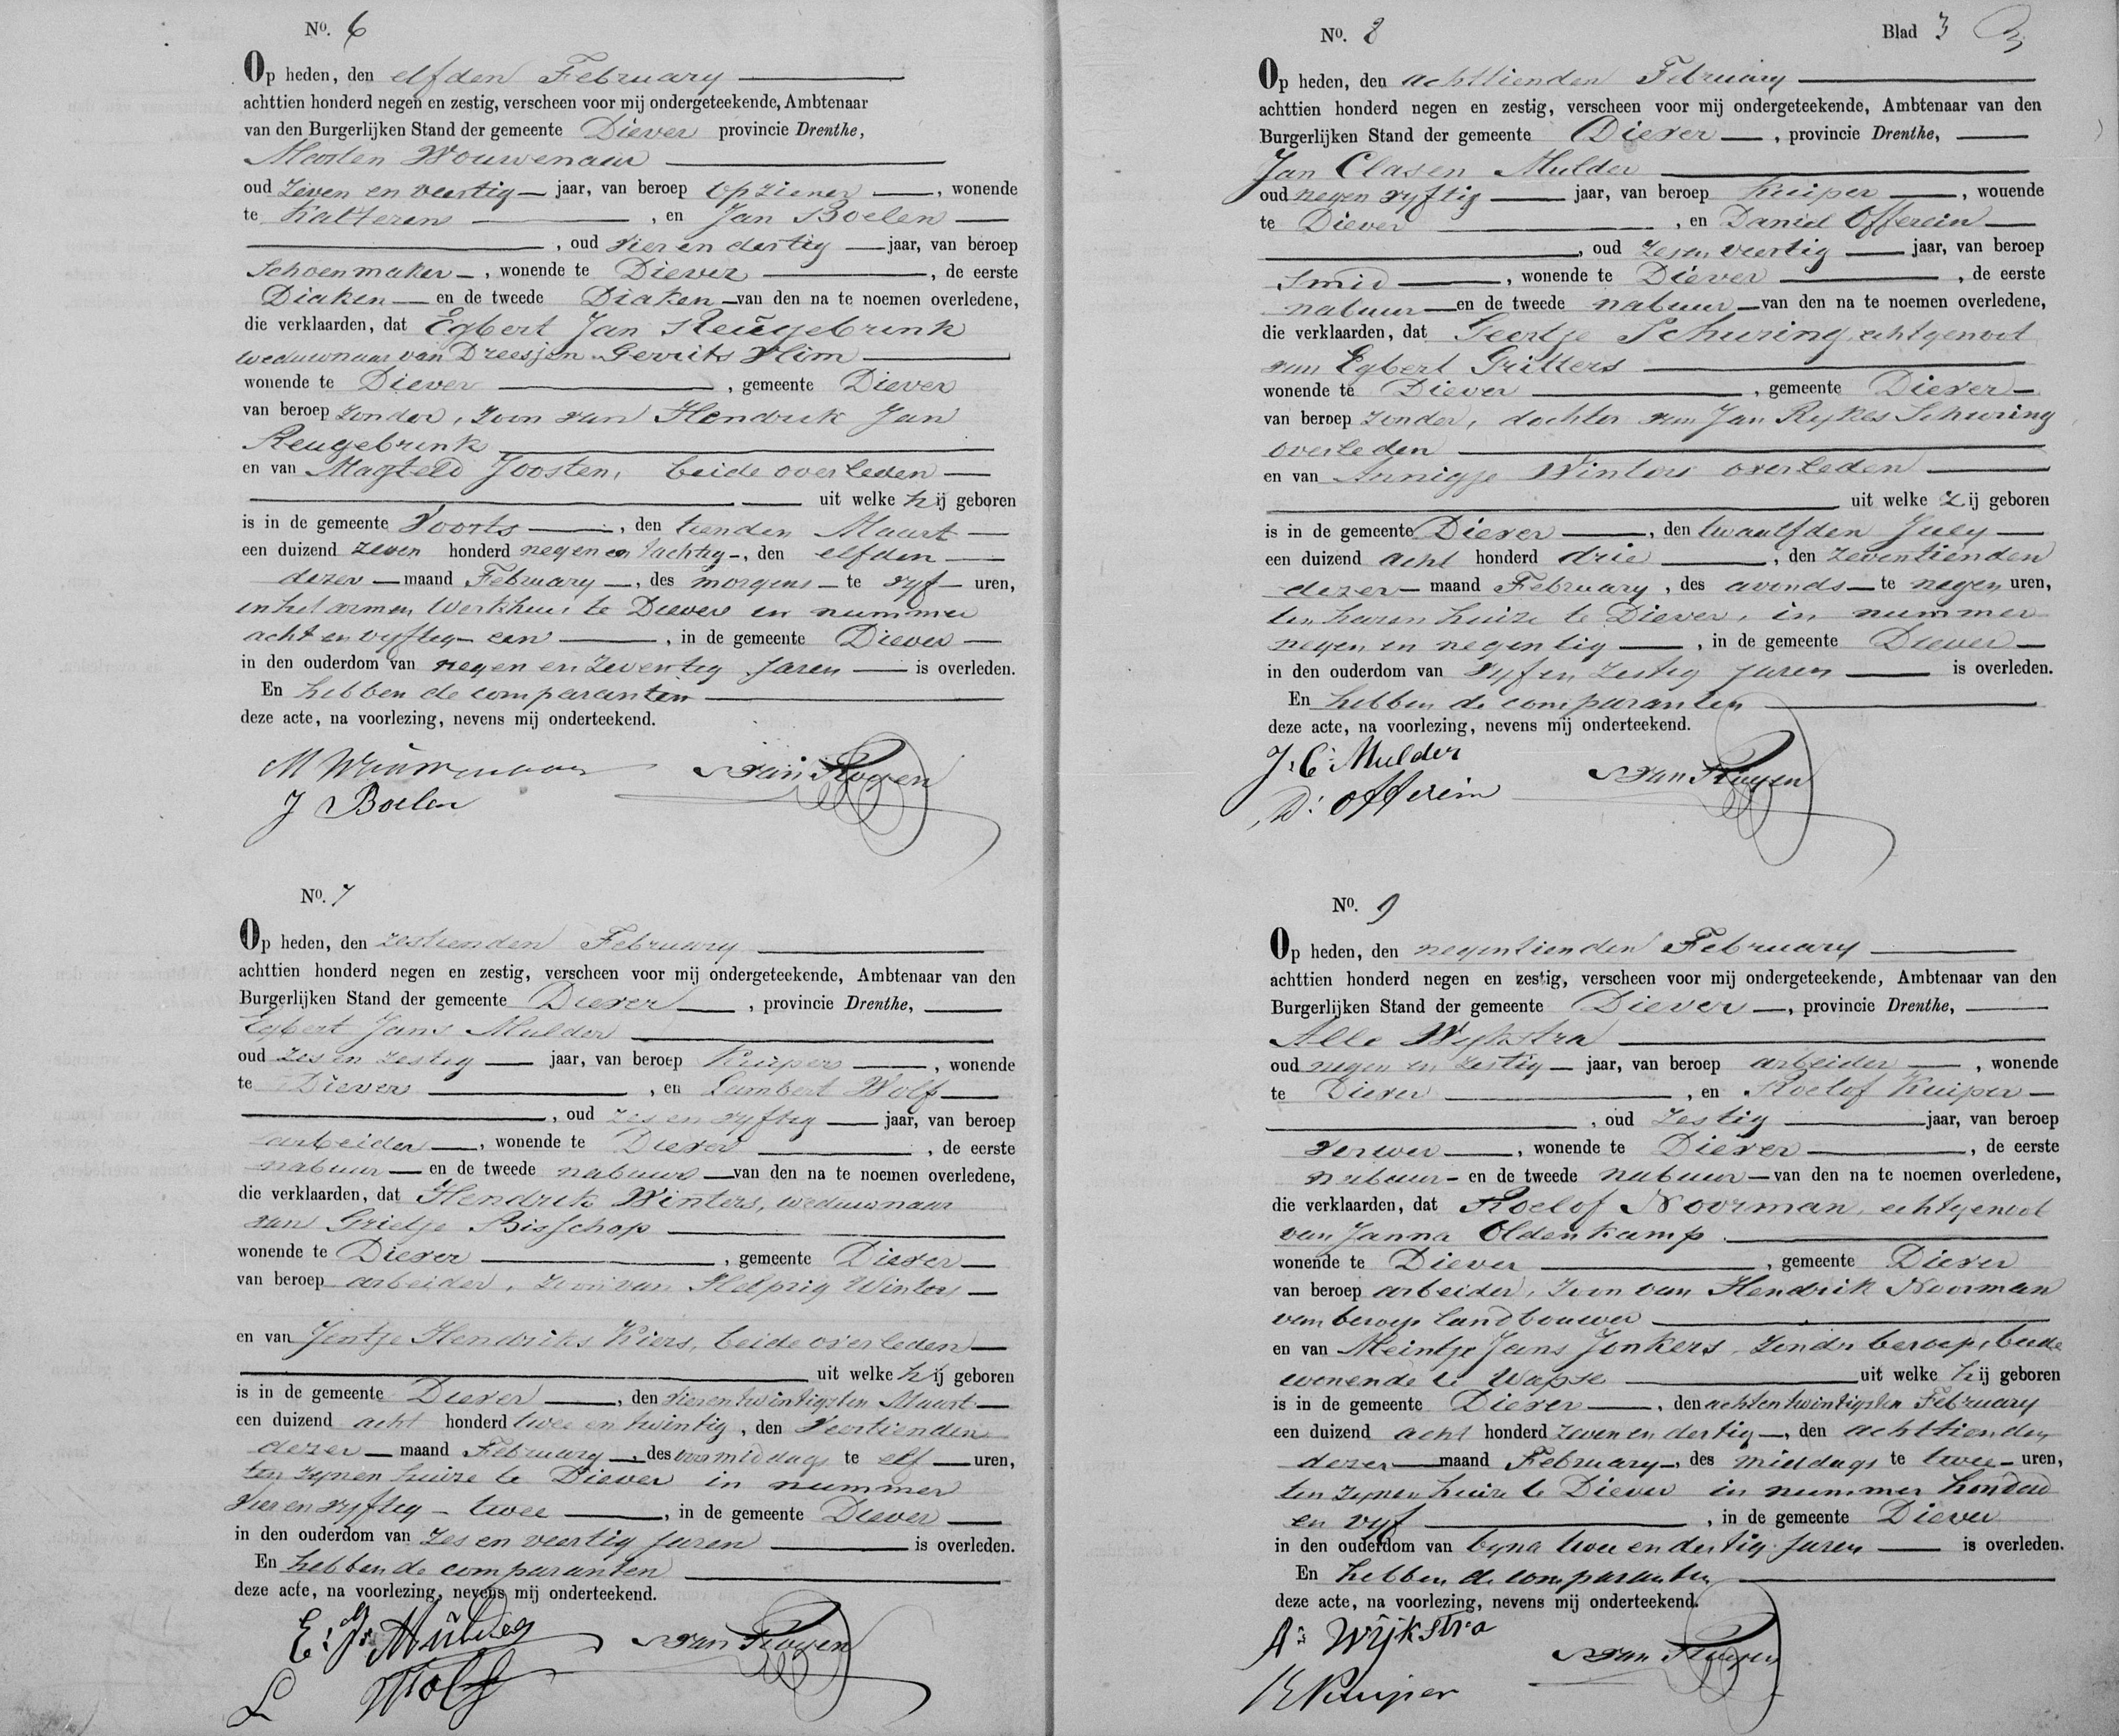 No. 6
Op heden, den elfden February
achttien honderd negen en zestig, verscheen voor mij ondergeteekende, Ambtenaar
van den Burgerlijken Stand der gemeente Diever provincie Drenthe,
Marten Wouwenaar
oud zeven en veertig jaar, van beroep opziener, wonende
te Kalteren, en Jan Boelen
, oud vier en dertig jaar, van beroep
Schoenmaker, wonende te Diever, de eerste
Diaken en de tweede Diaken van den na te noemen overledene,
die verklaarden, dat Egbert Jan Reugebrink
weduwnaar van Dreesjen Gerrits Slim
wonende te Diever, gemeente Diever
van beroep zonder, zoon van Hendrik Jan
Reugebrink
en van Magteld Joosten, beide overleden
uit welke hij geboren
is in de gemeente Voorts, den tienden Maart
een duizend zeven honderd negen en tachtig, den elfden
dezer maand February, des morgens te vyf uren,
in het armen werkhuis te Diever in nummer
acht en vyftig - een, in de gemeente Diever
in den ouderdom van negen en zeventig jaren is overleden.
En hebben de comparanten
deze acte, na voorlezing, nevens mij onderteekend.
M Wouwenaar van Royen
J Boelen
No. 7
Op heden, den zestienden February
achttien honderd negen en zestig, verscheen voor mij ondergeteekende, Ambtenaar van den
Burgerlijken Stand der gemeente Diever, provincie Drenthe,
Egbert Jans Mulder
oud zes en zestig jaar, van beroep Kuiper, wonende
te Diever, en Lambert Wolf
, oud zes en vyftig jaar, van beroep
arbeider, wonende te Diever, de eerste
nabuur en de tweede nabuur van den na te noemen overledene,
die verklaarden, dat Hendrik Winters, weduwnaar
van Grietje Bisschop
wonende te Diever, gemeente Diever
van beroep arbeider, zoon van Helprig Winters
en van Jentje Hendriks Kiers, beide overleden
uit welke hij geboren
is in de gemeente Diever, den vierentwintigsten Maart
een duizend acht honderd twee en twintig, den veertienden
dezer maand February, des voormiddags te elf uren,
ten zynen huize te Diever in nummer
vier en vyftig - twee, in de gemeente Diever
in den ouderdom van zes en veertig jaren is overleden.
En hebben de comparanten
deze acte, na voorlezing, nevens mij onderteekend.
E: Js: Mulder van Royen
L Wolf
No. 8 Blad 3
Op heden, den achttienden February
achttien honderd negen en zestig, verscheen voor mij ondergeteekende, Ambtenaar van den
Burgerlijken Stand der gemeente Diever, provincie Drenthe,
Jan Clasen Mulder
oud negen vyftig jaar, van beroep Kuiper, wonende
te Diever, en Daniel Offerein
, oud zesen veertig jaar, van beroep
Smid, wonende te Diever, de eerste
nabuur en de tweede nabuur van den na te noemen overledene,
die verklaarden, dat Geertje Schuring, echtgenoot
van Egbert Gritters
wonende te Diever, gemeente Diever
van beroep zonder, dochter van Jan Rykes Schuring
overleden
en van Annigje Winters overleden
uit welke zij geboren
is in de gemeente Diever, den twaalfden July
een duizend acht honderd drie, den zeventienden
dezer maand February, des avonds te negen uren,
ten haren huize te Diever, in nummer
negen en negentig, in de gemeente Diever
in den ouderdom van vyf en zestig jaren is overleden.
En hebben de comparanten
deze acte, na voorlezing, nevens mij onderteekend.
J. C. Mulder van Royen
D: Offerein
No. 9
Op heden, den negentienden February
achttien honderd negen en zestig, verscheen voor mij ondergeteekende, Ambtenaar van den
Burgerlijken Stand der gemeente Diever, provincie Drenthe,
Alle Wykstra
oud negen en zestig jaar, van beroep arbeider, wonende
te Diever, en Roelof Kuiper
, oud zestig jaar, van beroep
verwer, wonende te Diever, de eerste
nabuur en de tweede nabuur van den na te noemen overledene,
die verklaarden, dat Roelof Noorman, echtgenoot
van Janna Oldenkamp
wonende te Diever, gemeente Diever
van beroep arbeider, zoon van Hendrik Noorman
van beroep landbouwer
en van Meintje Jans Jonkers, zonder beroep, beide
wonende te Wapse uit welke hij geboren
is in de gemeente Diever, den achtentwintigsten February
een duizend acht honderd zeven en dertig, den achttienden
dezer maand February, des middags te twee uren,
ten zynen huize te Diever in nummer honderd
en vyf, in de gemeente Diever
in den ouderdom van byna twee en dertig jaren is overleden.
En hebben de comparanten
deze acte, na voorlezing, nevens mij onderteekend.
As Wijkstra van Royen
R Kuiper